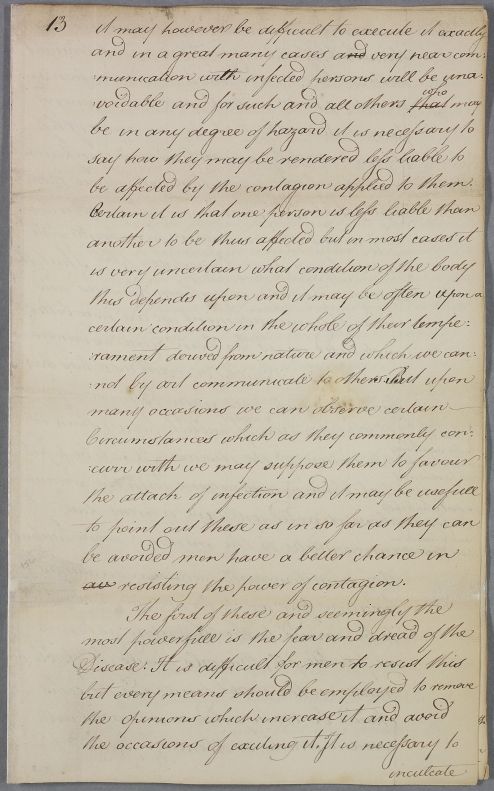 13
it may however be difficult to execute it exactly
and in a great many cases and very near com:
munication with infected persons will be una:
voidable and for such and all others that who may
be in any degree of hazard it is necessary to
say how they may be rendered less liable to
be affected by the contagion applied to them.
Certain it is that one person is less liable than
another to be thus affected but in most cases it
is very uncertain what condition of the body
this depends upon and it may be often upon a
certain condition in the whole of their tempe:
:rament derived from nature and which we can:
:not by art communicate to others. But upon
many occasions we can observe certain
Circumstances which as they commonly con:
:curr with we may suppose them to favour
the attach of infection and it may be usefull
to point out these as in so far as they can
be avoided men have a better chance in
resisting the power of contagion.
The first of these and seemingly the
most powerfull is the fear and dread of the
Disease. It is difficult for men to resist this
but every means should be employed to remove
the opinions which increase it and avoid
the occasions of exciting it. It is necessary to
inculcate